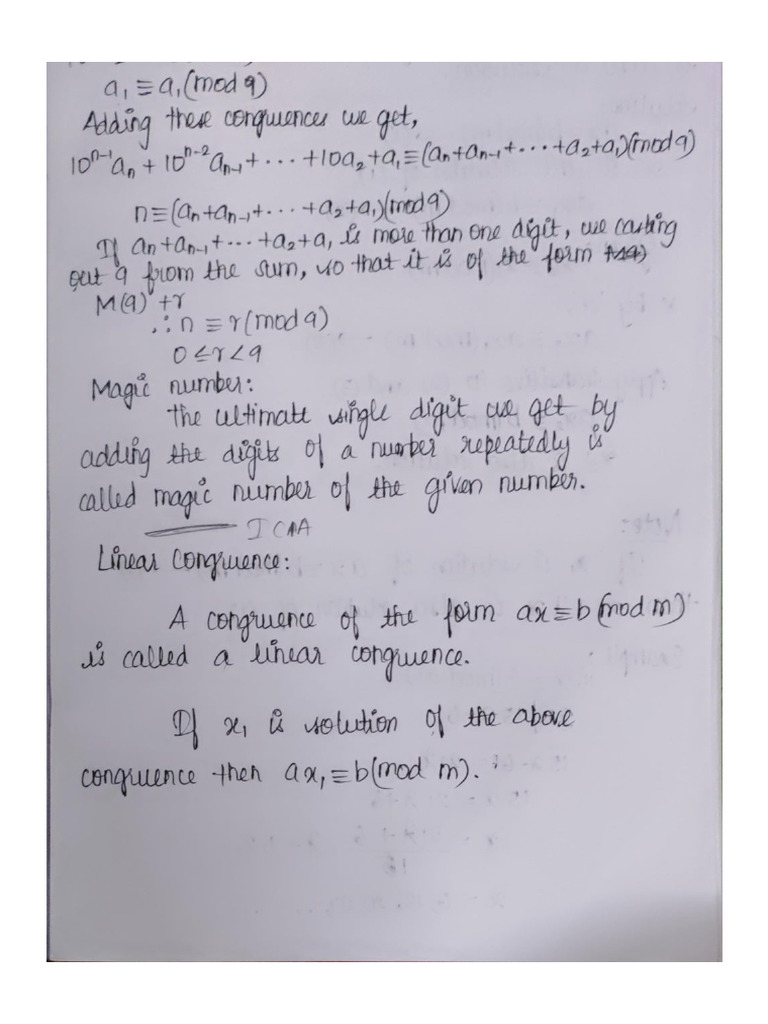 a₁ ≡ a₁(mod 9)
Adding these congruences we get,
10ⁿ⁻¹aₙ + 10ⁿ⁻²aₙ₋₁ + ... + 10a₂ + a₁ ≡ (aₙ + aₙ₋₁ + ... + a₂ + a₁)(mod 9)
n ≡ (aₙ + aₙ₋₁ + ... + a₂ + a₁)(mod 9)
If aₙ + aₙ₋₁ + ... + a₂ + a₁ is more than one digit, we casting
out 9 from the sum, so that it is of the form
M(9) + r
∴ n ≡ r(mod 9)
0 ≤ r < 9
Magic number:
The ultimate single digit we get by
adding the digits of a number repeatedly is
called magic number of the given number.
I CAA
Linear Congruence:
A congruence of the form ax ≡ b (mod m)
is called a linear congruence.
If x₁ is solution of the above
congruence then ax₁ ≡ b(mod m).